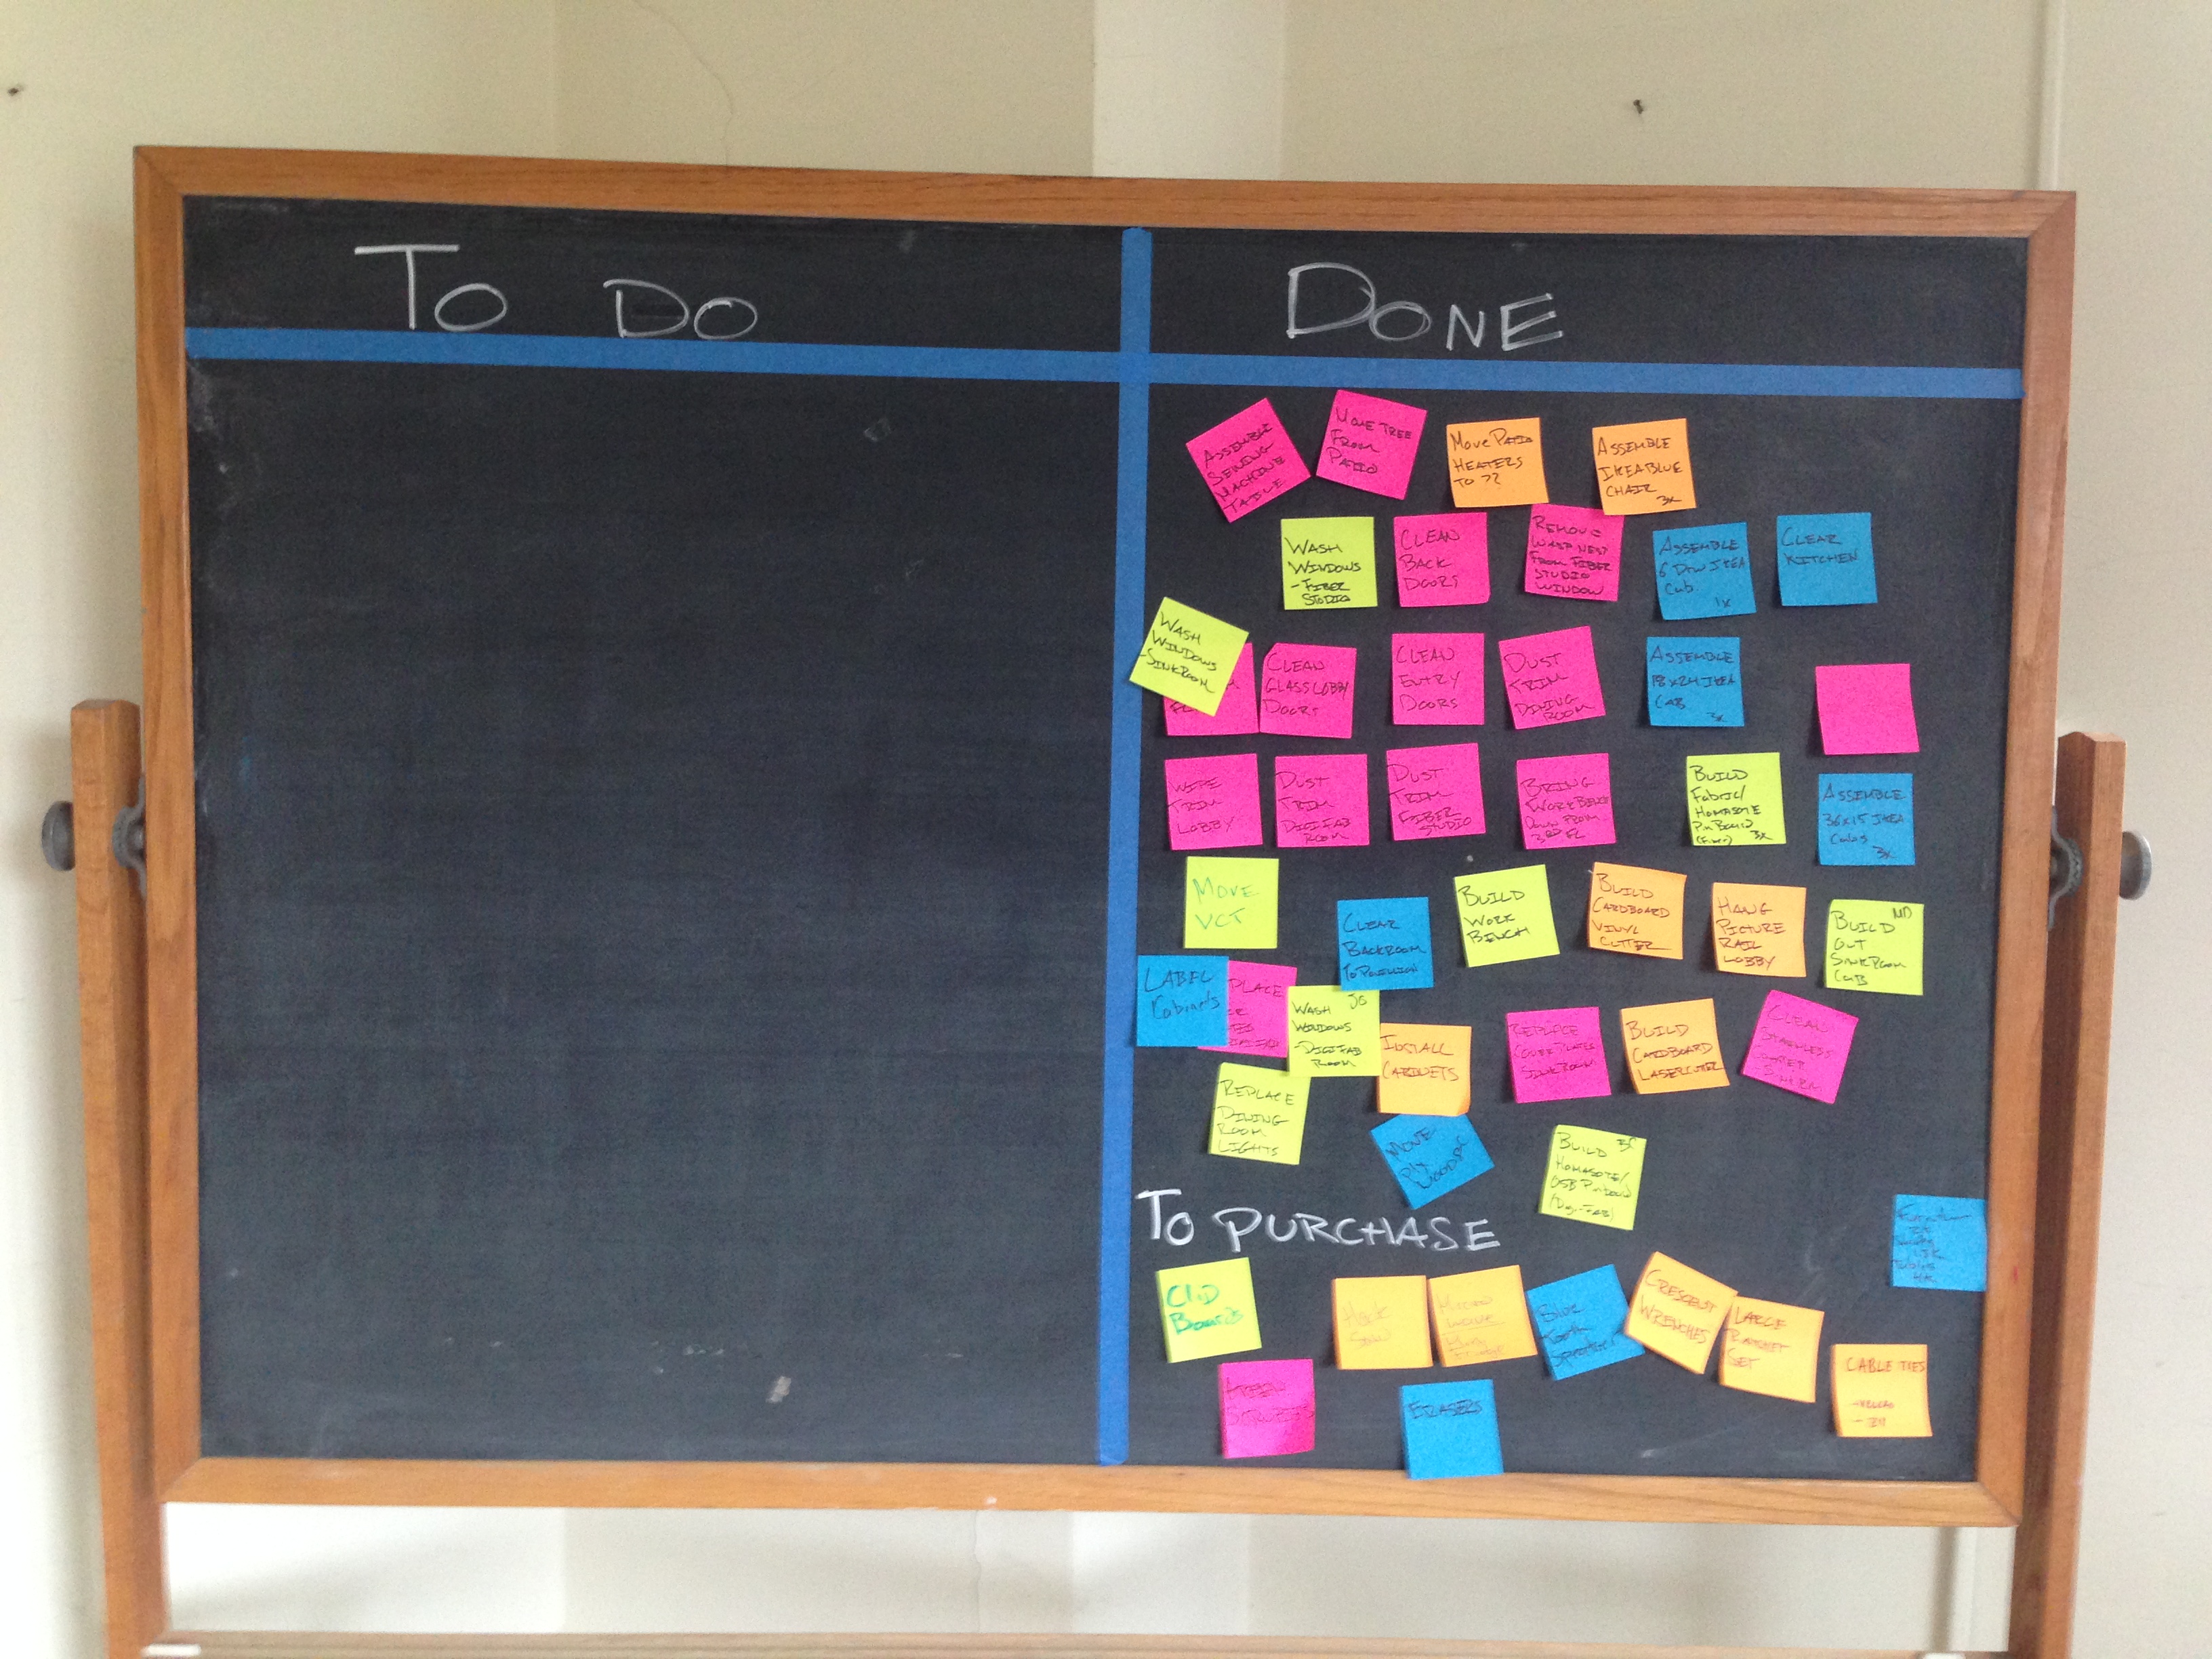 To Do
DONE
ASSEMBLE
SEWING
MACHINE
TABLE
MOVE TREE
FROM
PATIO
MOVE PATIO
HEATERS
TO ??
ASSEMBLE
IKEA BLUE
CHAIR
3x
WASH
WINDOWS
- FIBER
STUDIO
CLEAN
BACK
DOORS
REMOVE
WASP NEST
FROM FIBER
STUDIO
WINDOW
ASSEMBLE
6 DRW IKEA
Cab.
1x
CLEAR
KITCHEN
WASH
WINDOWS
- SINKROOM
CLEAN
GLASS LOBBY
DOORS
CLEAN
ENTRY
DOORS
DUST
TRIM
DINING
ROOM
ASSEMBLE
18x24 IKEA
CAB
3x
WIPE
TRIM
LOBBY
DUST
TRIM
DIGIFAB
ROOM
DUST
TRIM
FIBER
STUDIO
BRING
WORKBENCH
DOWN FROM
3RD FL
BUILD
Fabric/
HOMASOTE
Pin Board
(Fiber) 3x
ASSEMBLE
36x15 IKEA
Cabs
3x
MOVE
VCT
CLEAR
BACKROOM
BUILD
WORK
BENCH
BUILD
CARDBOARD
VINYL
CUTTER
HANG
PICTURE
RAIL
LOBBY
MD
BUILD
OUT
SINKROOM
CAB
LABEL
Cabinets
PLACE
WASH
WINDOWS
- DIGIFAB
ROOM
INSTALL
CABINETS
REPLACE
COVER PLATES
SINKROOM
BUILD
CARDBOARD
LASERCUTTER
CLEAN
STAINLESS
REPLACE
DINING
ROOM
LIGHTS
MOVE
PLY
WOOD
BUILD
HOMASOTE/
OSB Pinboard
(Digi-FAB)
To PURCHASE
Clip
Boards
Hack
Saw
Blue
Tooth
Speakers
CRESCENT
WRENCHES
LARGE
RATCHET
SET
CABLE TIES
- VELCRO
ERASERS